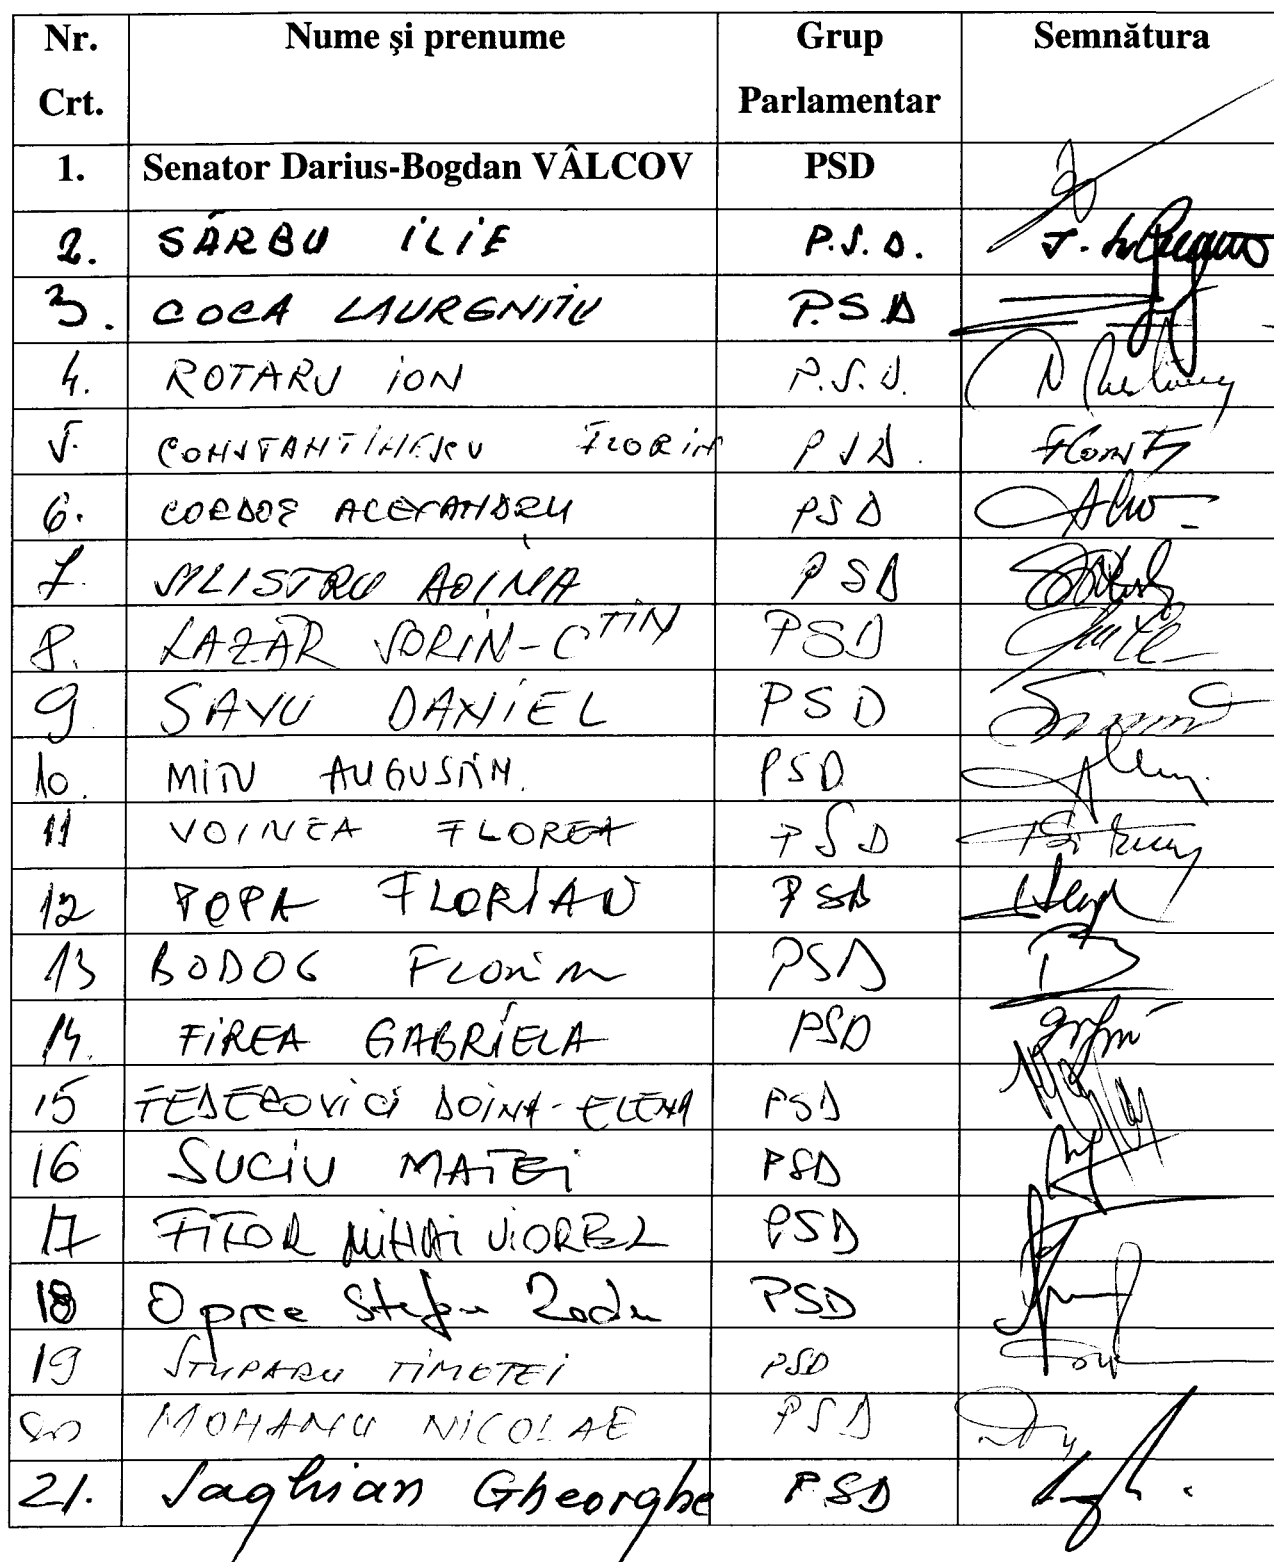 Nr. Crt. Nume și prenume Grup Parlamentar Semnătura
1. Senator Darius-Bogdan VÂLCOV PSD
2. SÂRBU ILIE P.S.D.
3. COCA LAURENȚIU P.S.D
4. ROTARU ION P.S.D.
5. CONSTANTINESCU FLORIN PSD.
6. CORDOȘ ALEXANDRU PSD
7. SILISTRU DOINA PSD
8. LAZĂR SORIN-CTIN PSD
9. SAVU DANIEL PSD
10. MITU AUGUSTIN. PSD
11 VOINEA FLOREA PSD
12 POPA FLORIAN PSD
13 BODOG Florin PSD
14. FIREA GABRIELA PSD
15 FEDEROVICI DOINA-ELENA PSD
16 SUCIU MATEI PSD
17 FIFOR MIHAI VIOREL PSD
18 Oprea Stefan Radu PSD
19 STUPARU TIMOTEI PSD
20 MOHANU NICOLAE PSD
21. Saghian Gheorghe PSD